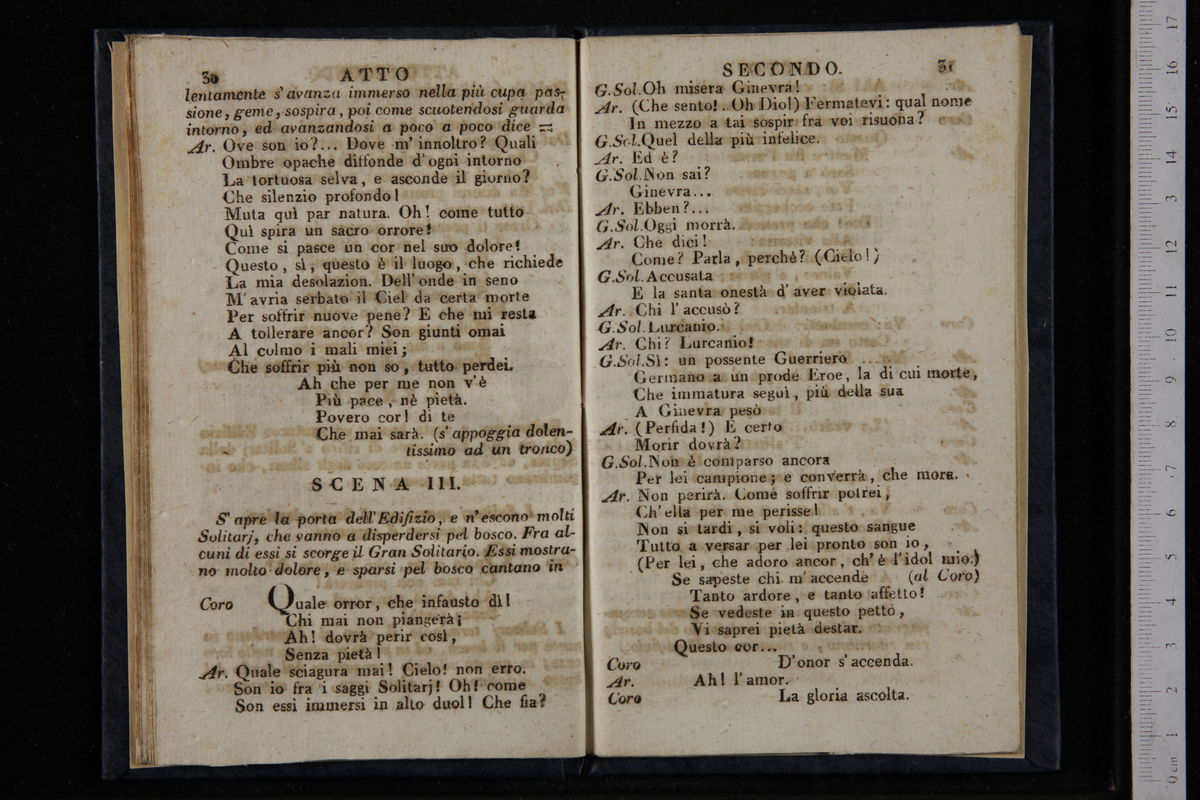 30 ATTO
lentamente s'avanza immerso nella più cupa pas-
sione, geme, sospira, poi come scuotendosi guarda
intorno, ed avanzandosi a poco a poco dice =
Ar. Ove son io?... Dove m'innoltro? Quali
Ombre opache diffonde d'ogni intorno
La tortuosa selva, e asconde il giorno?
Che silenzio profondo!
Muta quì par natura. Oh! come tutto
Quì spira un sacro orrore!
Come si pasce un cor nel suo dolore!
Questo, sì, questo è il luogo, che richiede
La mia desolazion. Dell'onde in seno
M'avria serbato il Ciel da certa morte
Per soffrir nuove pene? E che mi resta
A tollerare ancor? Son giunti omai
Al colmo i mali miei;
Che soffrir più non so, tutto perdei.
Ah che per me non v'è
Più pace, nè pietà.
Povero cor! di te
Che mai sarà. (s'appoggia dolen-
tissimo ad un tronco)
SCENA III.
S'apre la porta dell'Edifizio, e n'escono molti
Solitarj, che vanno a disperdersi pel bosco. Fra al-
cuni di essi si scorge il Gran Solitario. Essi mostra-
no molto dolore, e sparsi pel bosco cantano in
Coro Quale orror, che infausto dì!
Chi mai non piangerà;
Ah! dovrà perir così,
Senza pietà!
Ar. Quale sciagura mai! Cielo! non erro.
Son io fra i saggi Solitarj! Oh! come
Son essi immersi in alto duol! Che fia?
SECONDO. 31
G.Sol. Oh misera Ginevra!
Ar. (Che sento!.. Oh Dio!) Fermatevi: qual nome
In mezzo a tai sospir fra voi risuona?
G.Sol. Quel della più infelice.
Ar. Ed è?
G.Sol. Non sai?
Ginevra...
Ar. Ebben?...
G.Sol. Oggi morrà.
Ar. Che dici!
Come? Parla, perchè? (Cielo!)
G.Sol. Accusata
E la santa onestà d'aver violata.
Ar. Chi l'accusò?
G.Sol. Lurcanio.
Ar. Chi? Lurcanio!
G.Sol. Sì: un possente Guerriero
Germano a un prode Eroe, la di cui morte,
Che immatura seguì, più della sua
A Ginevra pesò
Ar. (Perfida!) E certo
Morir dovrà?
G.Sol. Non è comparso ancora
Per lei campione; e converrà, che mora.
Ar. Non perirà. Come soffrir potrei,
Ch'ella per me perisse!
Non si tardi, si voli: questo sangue
Tutto a versar per lei pronto son io,
(Per lei, che adoro ancor, ch'è l'idol mio.)
Se sapeste chi m'accende (al Coro)
Tanto ardore, e tanto affetto!
Se vedeste in questo petto,
Vi saprei pietà destar.
Questo cor...
Coro D'onor s'accenda.
Ar. Ah! l'amor.
Coro La gloria ascolta.